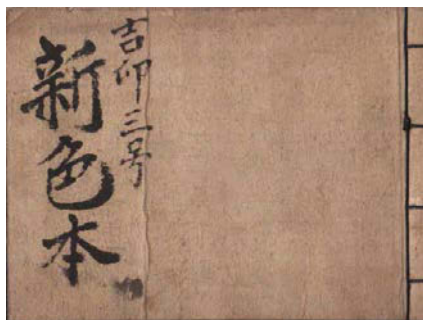 吉卯三号
新色本